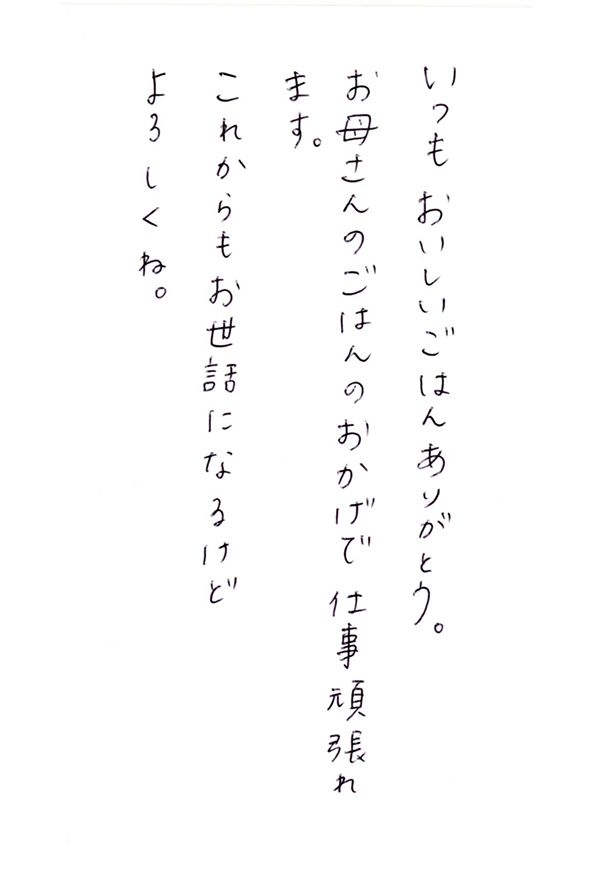 いつもおいしいごはんありがとう。
お母さんのごはんのおかげで仕事頑張れ
ます。
これからもお世話になるけど
よろしくね。